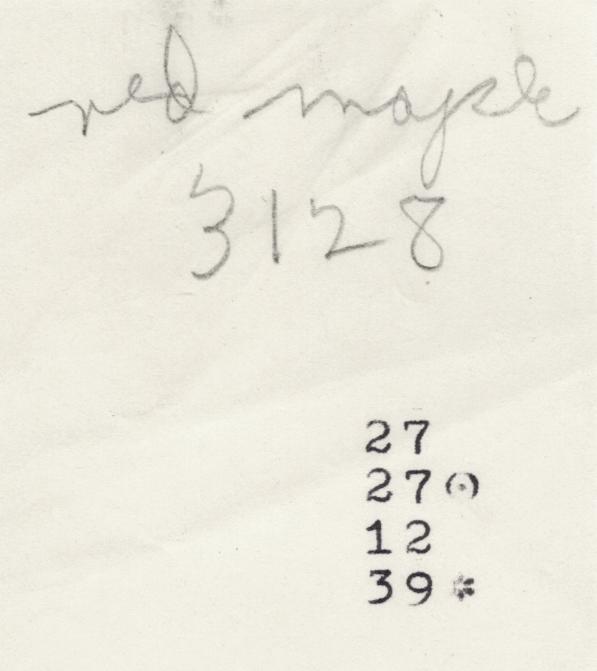 red maple
3128
27
27⊙
12
39*